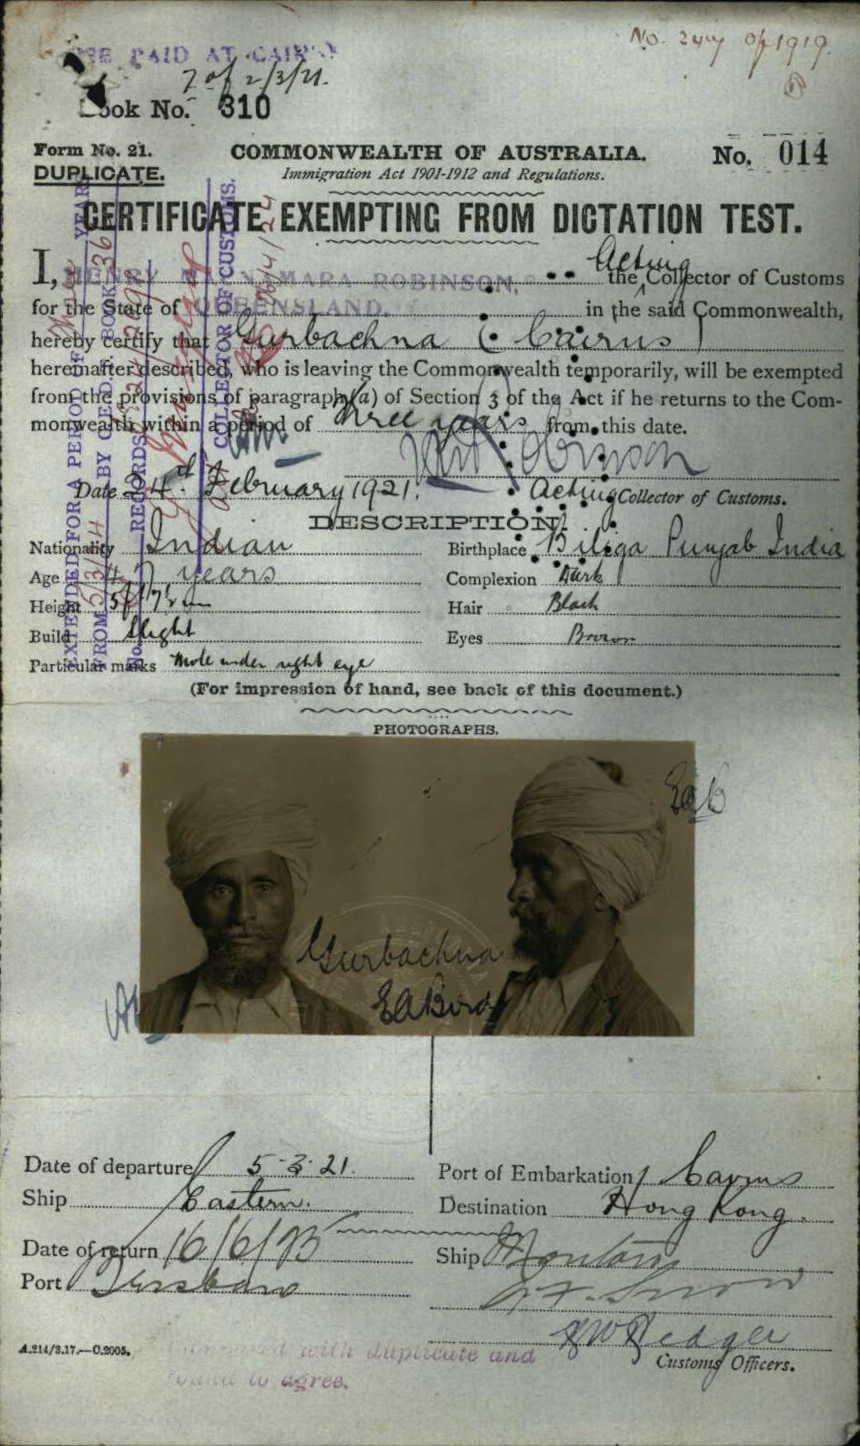 FEE PAID AT CAIRNS
No. of 1919
7 of 2/3/21.
Book No. 310
Form No. 21.
COMMONWEALTH OF AUSTRALIA.
No. 014
DUPLICATE.
Immigration Act 1901-1912 and Regulations.
CERTIFICATE EXEMPTING FROM DICTATION TEST.
I, HENRY MACNAMARA ROBINSON, the Acting Collector of Customs
for the State of QUEENSLAND. in the said Commonwealth,
hereby certify that Gurbachna (Cairns)
hereinafter described, who is leaving the Commonwealth temporarily, will be exempted
from the provisions of paragraph (a) of Section 3 of the Act if he returns to the Com-
monwealth within a period of three years from this date.
Robinson
Date 24th February 1921. Acting Collector of Customs.
EXTENDED FOR A PERIOD OF YEAR
FROM 5/3/24 BY C.E.D.T. BOOK 36
No. RECORDS
COLLECTOR OF CUSTOMS.
DESCRIPTION.
Nationality Indian
Birthplace Bilga Punjab India
Age 47 years
Complexion Dark
Height 5ft 7½ in
Hair Black
Build Slight
Eyes Brown
Particular marks Mole under right eye
(For impression of hand, see back of this document.)
PHOTOGRAPHS.
EAB
Gurbachna
EABird
Date of departure 5-3-21.
Port of Embarkation Cairns
Ship Eastern.
Destination Hong Kong.
Date of return 16/6/
Ship
Port Brisbane
Customs Officers.
A.214/3.17.—C.2005.
with duplicate and
found to agree.